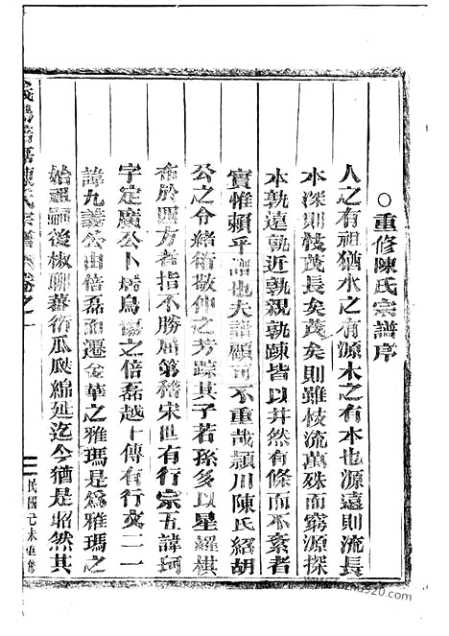 ○重修陳氏宗譜序
人之有祖猶水之有源木之有本也源遠則流長
本深則枝茂長矣茂矣則雖枝流萬殊而窮源探
本孰遠孰近孰親孰疎皆以井然有條而不紊者
實惟賴乎譜也夫譜顧可不重哉潁川陳氏紹胡
公之令緒術敬仲之芳踪其子若孫多以星羅棋
布於四方者指不勝屈第稽宋世有行宗五諱珂
字定廣公卜居烏傷之倍磊越十傳有行爽二一
諱九義公由倍磊而遷金華之雅瑪是為雅瑪之
始祖嗣後椒聊蕃衍瓜瓞綿延迄今猶是昭然其
陳氏宗譜 卷之一
一
民國元